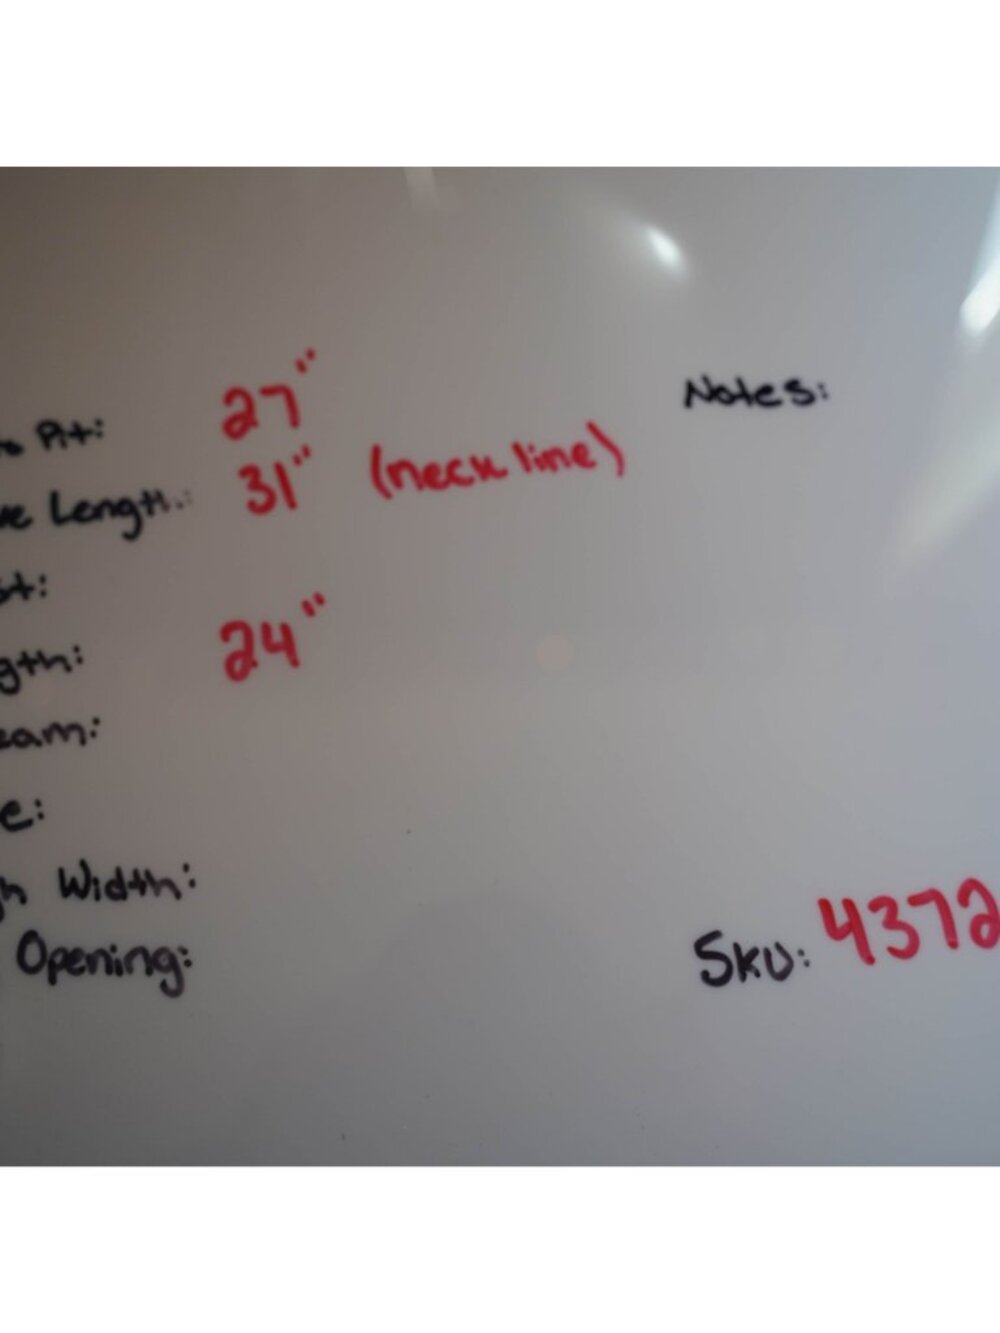 Pit: 27"
Length: 31" (neck line)
24"
Width:
Opening:
Notes:
Sku: 4372